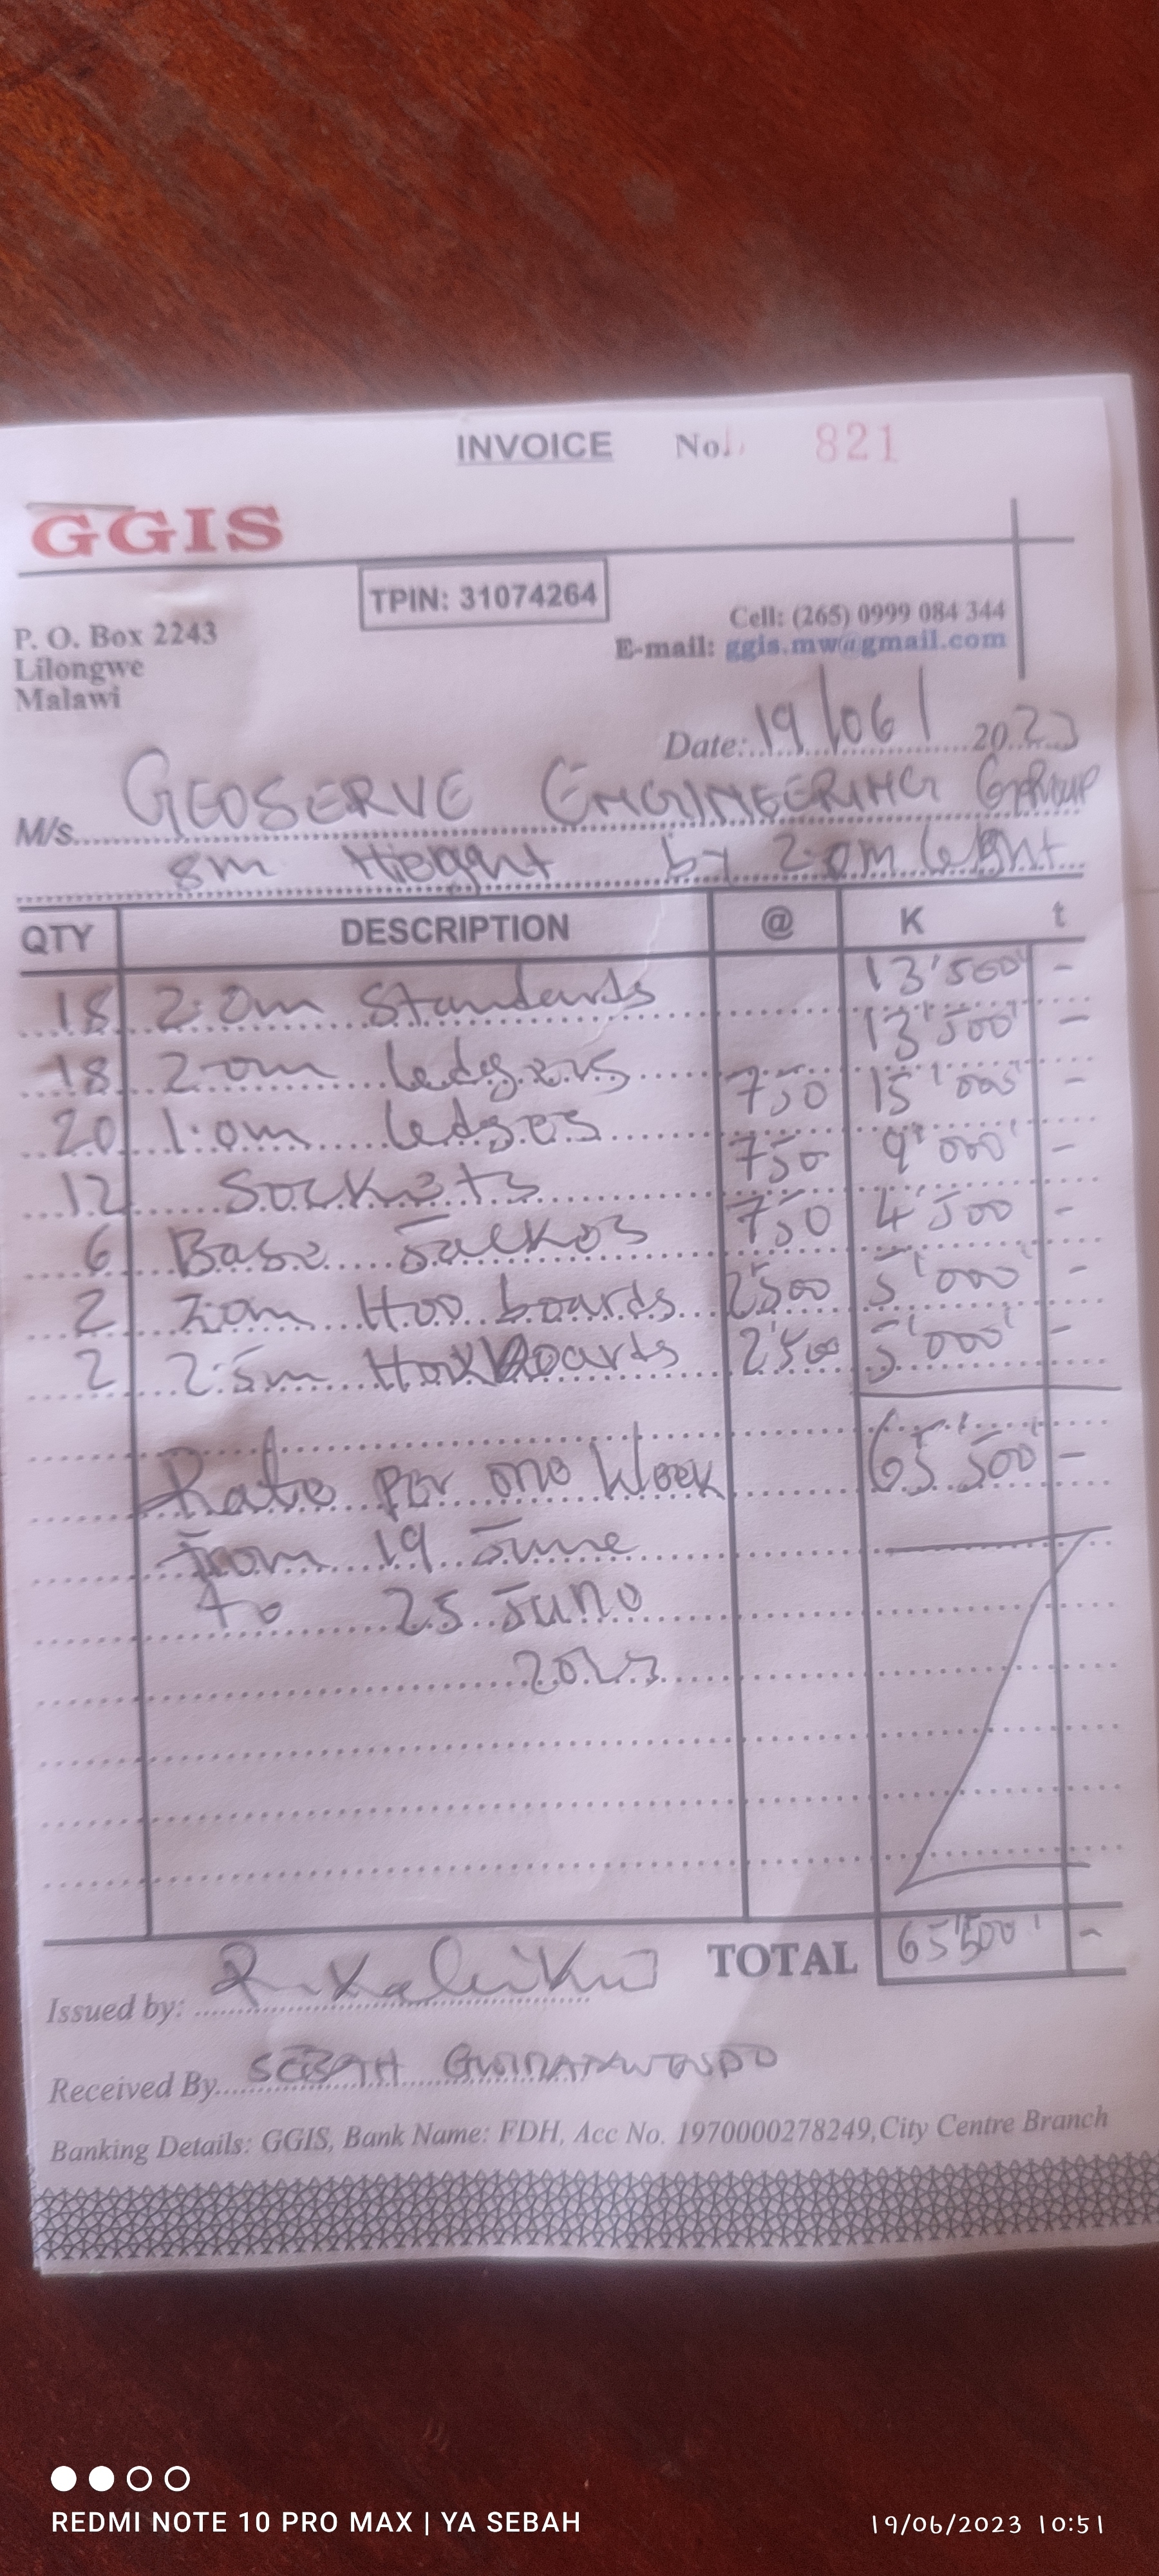 INVOICE No. 821
GGIS
TPIN: 31074264
P. O. Box 2243
Lilongwe
Malawi
Cell: (265) 0999 084 344
E-mail: ggis.mw@gmail.com
Date: 19/06/ 2023
M/s. GEOSERVE ENGINEERING GROUP
8m Height by 2.0m
QTY DESCRIPTION @ K t
18 2.0m Standards 13'500' -
18 2.0m ledgers 13'500' -
20 1.0m ledges 750 15'000' -
12 Sockets 750 9'000' -
6 Base Jackos 750 4'500 -
2 2.0m Hoo boards 2'500 5'000' -
2 2.5m 2'500 5'000' -
Rate per one Week 65'500' -
from 19 June
to 25 June
2023
TOTAL 65'500' -
Issued by:
Received By SEBAH
Banking Details: GGIS, Bank Name: FDH, Acc No. 1970000278249, City Centre Branch
REDMI NOTE 10 PRO MAX | YA SEBAH
19/06/2023 10:51